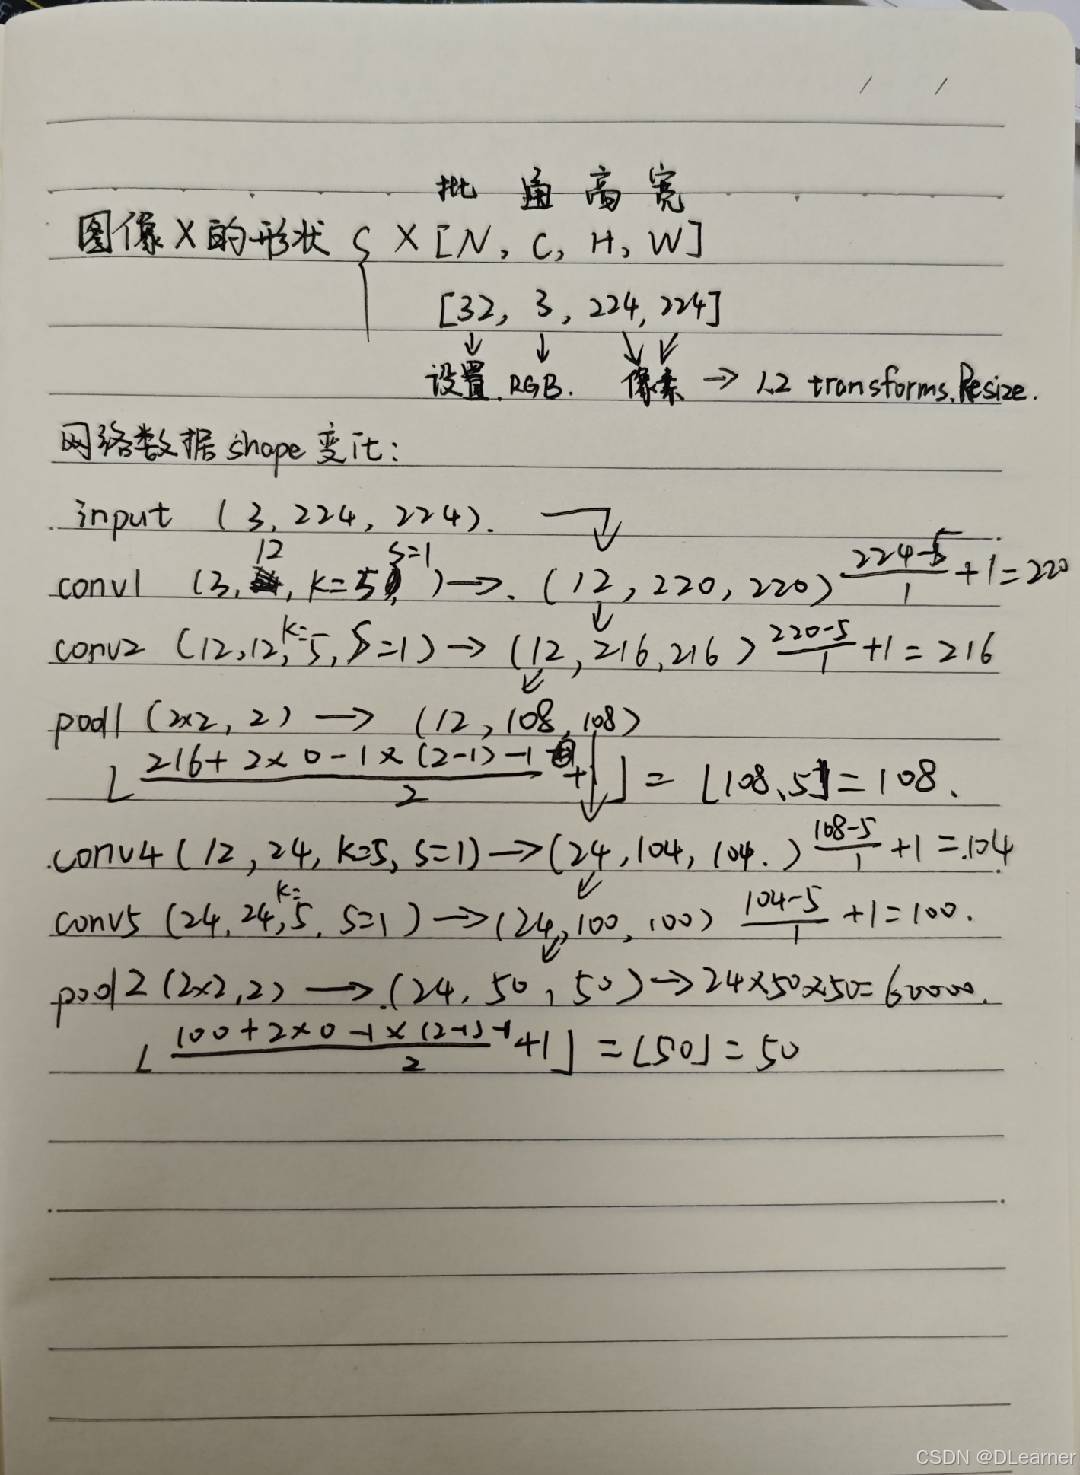 / /
批 通 高 宽
图像X的形状 { X [N, C, H, W]
[32, 3, 224, 224]
↓ ↓ ↘↙
设置 RGB. 像素 → 1.2 transforms.Resize.
网络数据shape变化:
input (3, 224, 224).
conv1 (3, 12, k=5, s=1) → (12, 220, 220) (224-5)/1 +1=220
conv2 (12, 12, k=5, S=1) → (12, 216, 216) (220-5)/1 +1=216
pool1 (2x2, 2) → (12, 108, 108)
⌊(216+2×0-1×(2-1)-1)/2 +1⌋ = ⌊108.5⌋ = 108.
conv4 (12, 24, k=5, s=1) → (24, 104, 104.) (108-5)/1 +1=104
conv5 (24, 24, k=5, s=1) → (24, 100, 100) (104-5)/1 +1=100.
pool2 (2x2, 2) → (24, 50, 50) → 24×50×50=60000.
⌊(100+2×0-1×(2-1)-1)/2 +1⌋ = ⌊50⌋ = 50
CSDN @DLearner